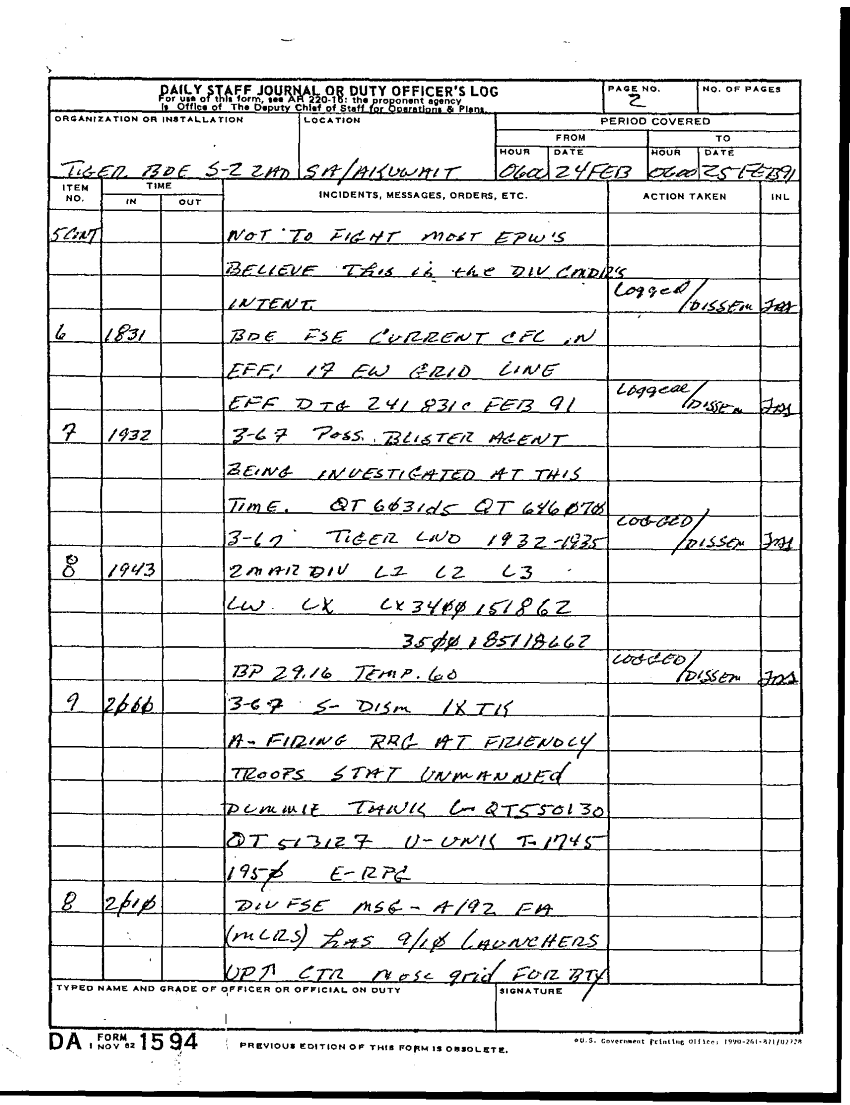 DAILY STAFF JOURNAL OR DUTY OFFICER'S LOG
For use of this form, see AR 220-15; the proponent agency
is Office of The Deputy Chief of Staff for Operations & Plans.
PAGE NO.
2
NO. OF PAGES
ORGANIZATION OR INSTALLATION
LOCATION
PERIOD COVERED
FROM
TO
HOUR
DATE
HOUR
DATE
TIGER BDE S-2 2AD
SA/ KUWAIT
0600
24 FEB
0600
25 FEB 91
ITEM NO.
TIME
IN
OUT
INCIDENTS, MESSAGES, ORDERS, ETC.
ACTION TAKEN
INL
5 CONT
NOT TO FIGHT MOST EPW'S
BELIEVE This is the DIV CMDR'S
INTENT.
Logged/DISSEM
6 1831 BDE FSE CURRENT CFL IN
EFF! 17 EW GRID LINE
EFF DTG 241831c FEB 91
Logged/DISSEM
7 1932 3-67 POSS. BLISTER AGENT
BEING INVESTIGATED AT THIS
TIME. QT 6031d5 QT 646070
3-67 TIGER LNO 1932-1935
LOGGED/DISSEM
8 1943 2 MAR DIV L2 L2 L3
LW LX LX3400151862
3500185118662
BP 29.16 TEMP. 60
LOGGED/DISSEM
9 3-67 S- DISM 1X TK
A- FIRING RRG AT FRIENDLY
TROOPS STAT UNMANNED
DUMMIE TANK L- QT550130
QT 513127 U-UNK T-1745
1950 E-RPG
8 2010 DIV FSE MSG - A/92 FA
(MLRS) has 9/10 LAUNCHERS
UPT CTR mosc grid FOR BTY
TYPED NAME AND GRADE OF OFFICER OR OFFICIAL ON DUTY
SIGNATURE
DA FORM 1 NOV 62 1594
PREVIOUS EDITION OF THIS FORM IS OBSOLETE.
*U.S. Government Printing Office: 1990-261-871/02728